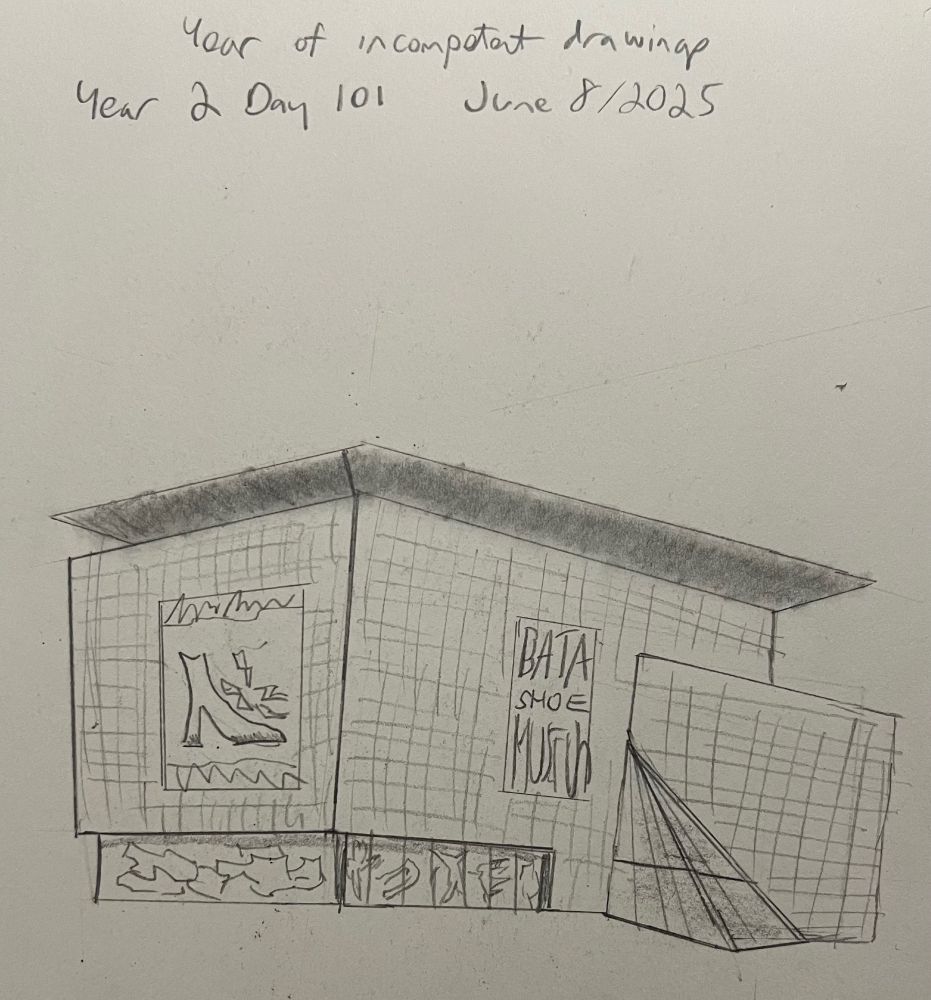 Year of incompetent drawings
Year 2 Day 101 June 8/2025
BATA
SHOE